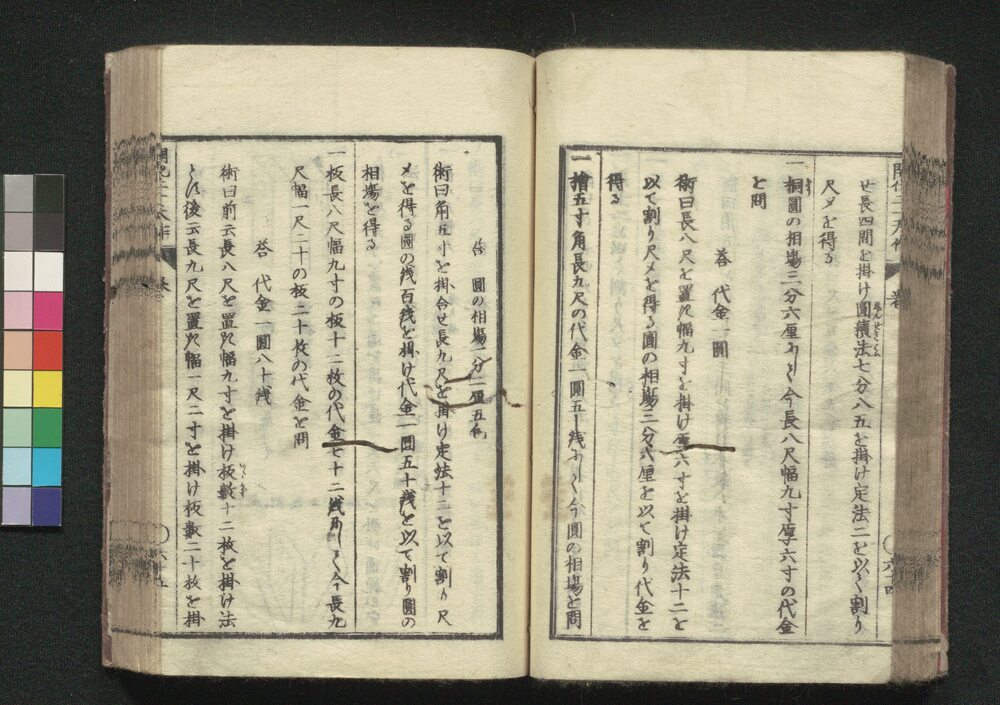 せ長四間を掛け圓積法七分八五を掛け定法二を以て割り
尺〆を得る
一桐圓の相場三分六厘あり今長八尺幅九寸厚六寸の代金
を問
荅 代金一圓
術曰長八尺を置尺幅九寸を掛け厚六寸を掛け定法十二を
以て割り尺〆を得る圓の相場三分六厘を以て割り代金を
得る
一檜五寸角長九尺の代金一圓五十銭あり今圓の相場を問
荅 圓の相場一分二厘五毛
術曰角五寸を掛合せ長九尺を掛け定法十二を以て割り尺
〆を得る圓の銭百銭を掛け代金一圓五十銭を以て割り圓の
相場を得る
一板長八尺幅九寸の板十二枚の代金七十二銭あり今長九
尺幅一尺二寸の板二十枚の代金を問
荅 代金一圓八十銭
術曰前云長八尺を置尺幅九寸を掛け板數十二枚を掛け法
とす後云長九尺を置尺幅一尺二寸を掛け板數二十枚を掛